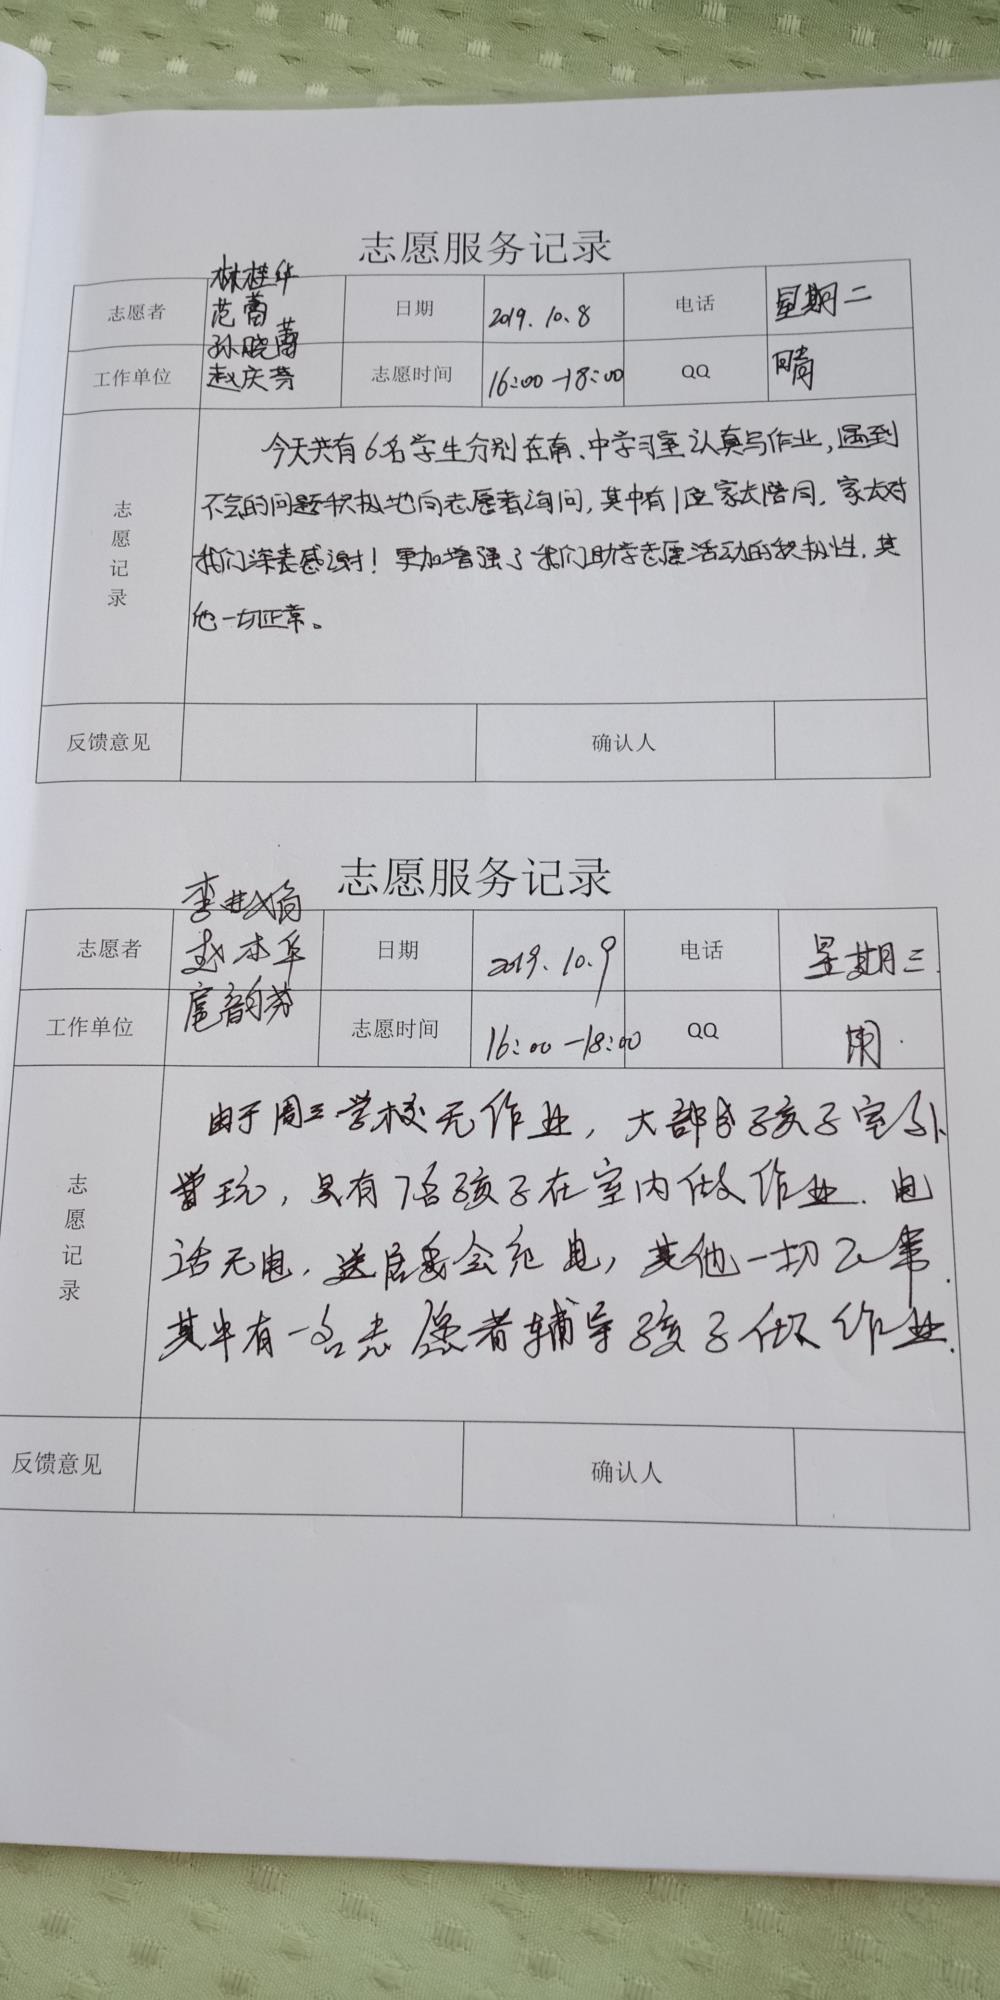 志愿服务记录
志愿者 林桂华 范蕾 孙晓蕾 日期 2019.10.8 电话 星期二
工作单位 赵庆芳 志愿时间 16:00-18:00 QQ 晴
志愿记录
今天共有6名学生分别在南、中学习室认真写作业,遇到
不会的问题积极地向志愿者询问,其中有1位家长陪同,家长对
我们深表感谢!更加增强了我们助学志愿活动的积极性,其
他一切正常。
反馈意见 确认人
志愿服务记录
志愿者 赵本华 日期 2019.10.9 电话 星期三.
工作单位 志愿时间 16:00-18:00 QQ 阴.
志愿记录
由于周三学校无作业,大部分孩子室外
玩,只有7名孩子在室内做作业.电
话无电,送居委会充电,其他一切正常.
其中有一名志愿者辅导孩子做作业.
反馈意见 确认人